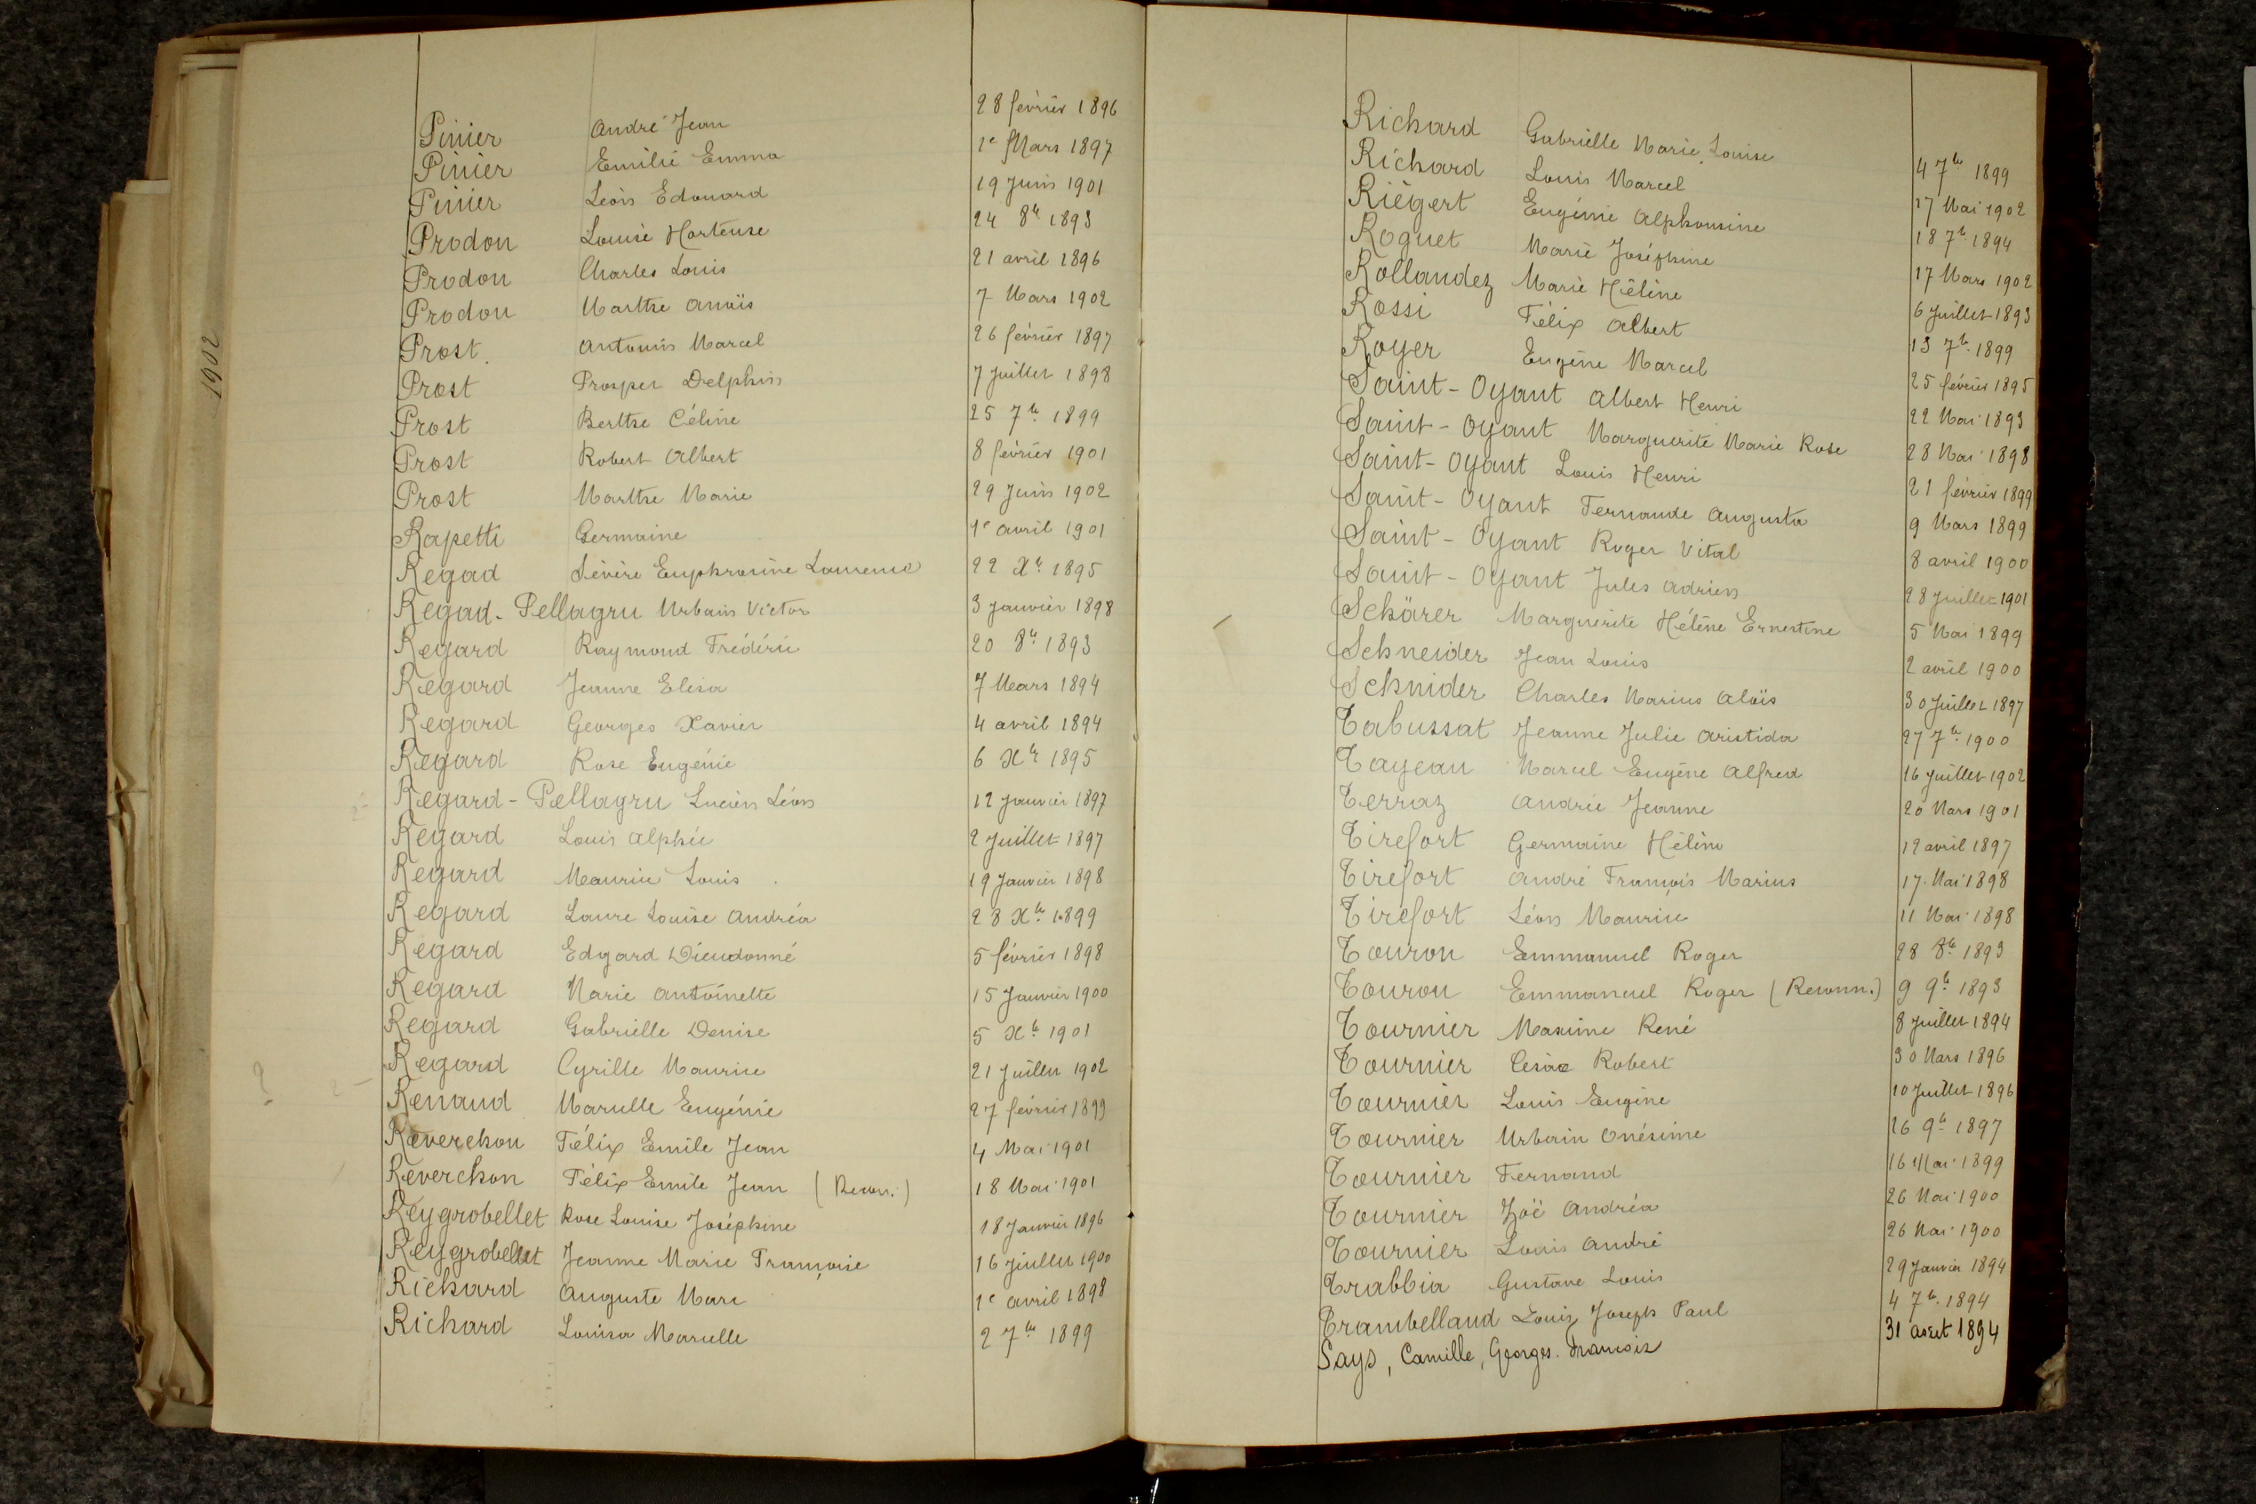 1902
Pinier André Jean 28 février 1896
Pinier Emilie Emma 1e Mars 1897
Pinier Léon Edouard 19 Juin 1901
Prodon Louise Hortense 24 8bre 1893
Prodon Charles Louis 21 avril 1896
Prodon Marthe Anaïs 7 Mars 1902
Prost Antonin Marcel 26 février 1897
Prost Prosper Delphin 7 Juillet 1898
Prost Berthe Céline 25 7bre 1899
Prost Robert Albert 8 février 1901
Prost Marthe Marie 29 Juin 1902
Rapetti Germaine 1e avril 1901
Regad Sévère Euphrosine Laurence 22 Xbre 1895
Regad-Pellagru Urbain Victor 3 Janvier 1898
Regard Raymond Frédéric 20 8bre 1893
Regard Jeanne Elisa 7 Mars 1894
Regard Georges Xavier 4 avril 1894
Regard Rose Eugénie 6 Xbre 1895
Regard-Pellagru Lucien Léon 12 Janvier 1897
Regard Louis Alphée 2 Juillet 1897
Regard Maurice Louis 19 Janvier 1898
Regard Laure Louise Andréa 28 Xbre 1899
Regard Edgard Dieudonné 5 février 1898
Regard Marie Antoinette 15 Janvier 1900
Regard Gabrielle Denise 5 Xbre 1901
Regard Cyrille Maurice 21 Juillet 1902
Renaud Marcelle Eugénie 27 février 1899
Reverchon Félix Emile Jean 4 Mai 1901
Reverchon Félix Emile Jean (Recon.) 18 Mai 1901
Reygrobellet Rose Louise Joséphine 18 Janvier 1896
Reygrobellet Jeanne Marie Françoise 16 Juillet 1900
Richard Auguste Marc 1e avril 1898
Richard Louisa Marcelle 2 7bre 1899
Richard Gabrielle Marie Louise 4 7bre 1899
Richard Louis Marcel 17 Mai 1902
Riègert Eugénie Alphonsine 18 7bre 1894
Roguet Marie Joséphine 17 Mars 1902
Rollandez Marie Hélène 6 Juillet 1893
Rossi Félix Albert 13 7bre 1899
Royer Eugène Marcel 25 février 1895
Saint-Oyant Albert Henri 22 Mai 1893
Saint-Oyant Marguerite Marie Rose 28 Mai 1898
Saint-Oyant Louis Henri 21 février 1899
Saint-Oyant Fernande Augusta 9 Mars 1899
Saint-Oyant Roger Vital 8 avril 1900
Saint-Oyant Jules Adrien 28 Juillet 1901
Schärer Marguerite Hélène Ernestine 5 Mai 1899
Schneider Jean Louis 2 avril 1900
Schnider Charles Marius Aloïs 30 Juillet 1897
Tabussat Jeanne Julie Aristida 27 7bre 1900
Tayeau Marcel Eugène Alfred 16 Juillet 1902
Terraz Andrée Jeanne 20 Mars 1901
Tirefort Germaine Hélène 12 avril 1897
Tirefort André François Marius 17 Mai 1898
Tirefort Léon Maurice 11 Mai 1898
Touron Emmanuel Roger 28 8bre 1893
Touron Emmanuel Roger (Reconn.) 9 9bre 1893
Tournier Maxime René 8 Juillet 1894
Tournier César Robert 30 Mars 1896
Tournier Louis Eugène 10 Juillet 1896
Tournier Urbain Onésime 26 9bre 1897
Tournier Fernand 16 Mai 1899
Tournier Zoë Andréa 26 Mai 1900
Tournier Louis André 26 Mai 1900
Trabbia Gustave Louis 29 Janvier 1894
Trambelland Louis Joseph Paul 4 7bre 1894
Says, Camille, Georges. François 31 août 1894